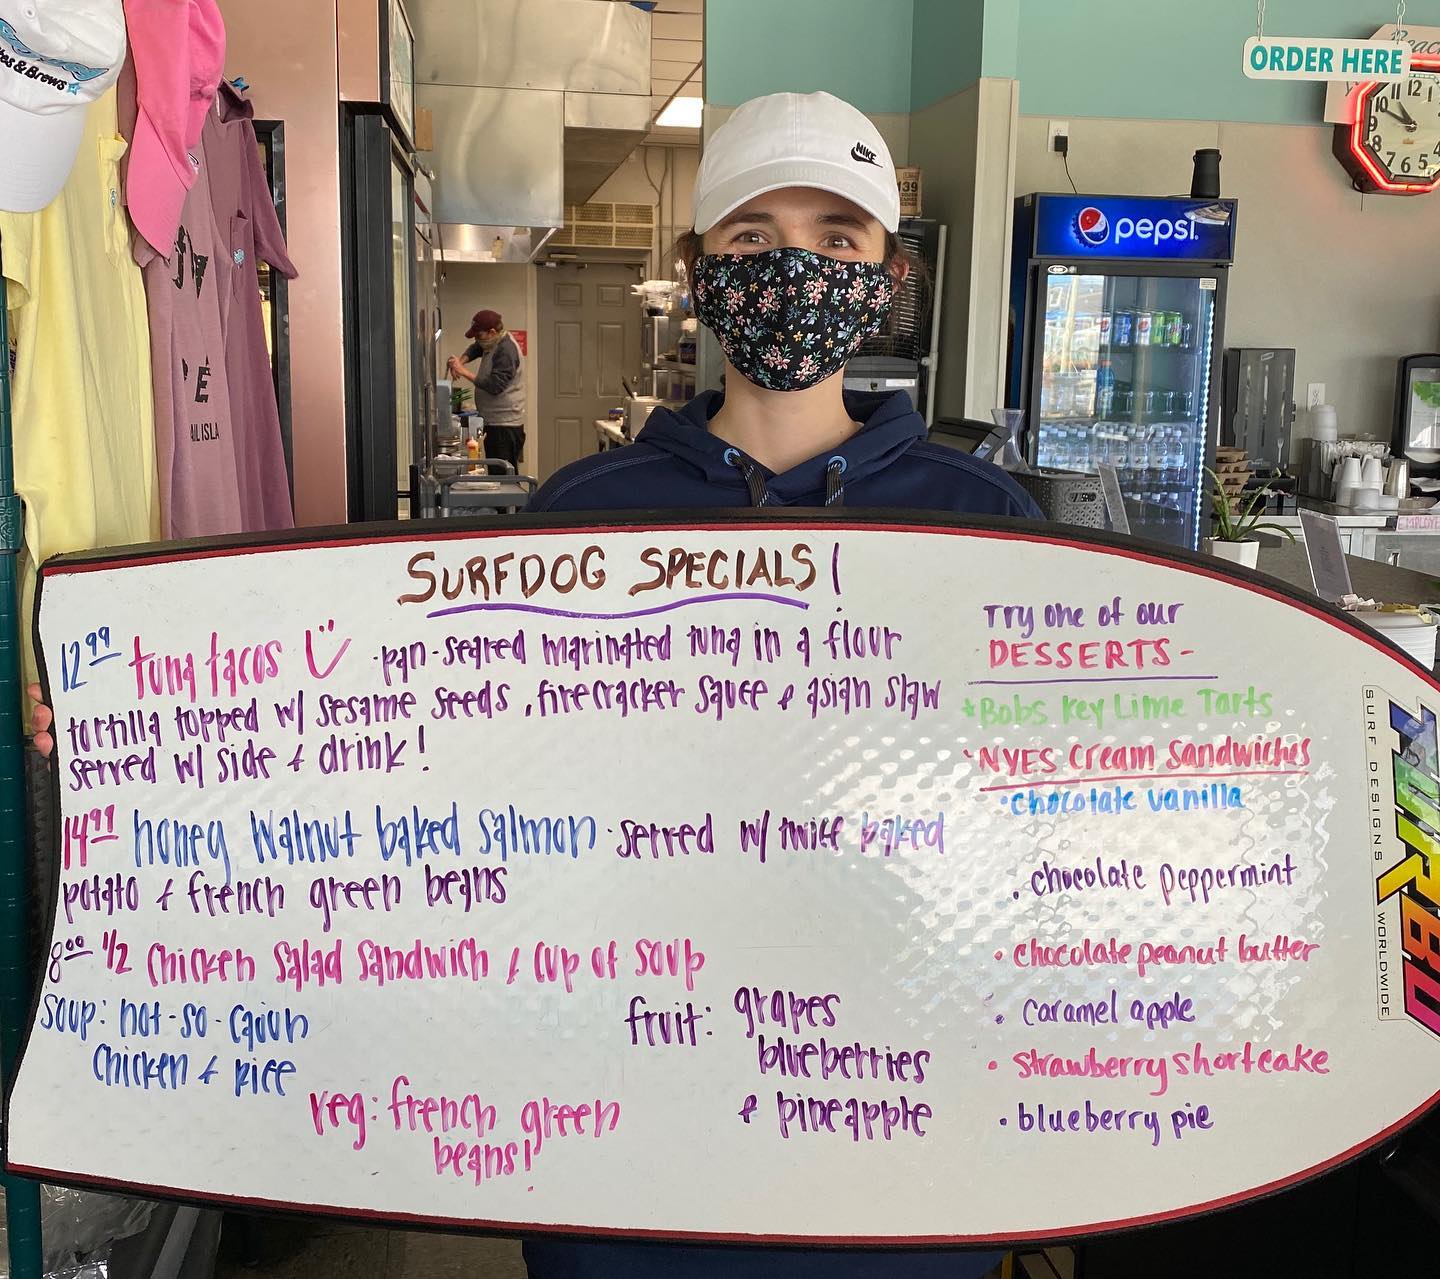 SURFDOG SPECIALS!
12.99 tuna tacos -pan-seared marinated tuna in a flour
tortilla topped w/ sesame seeds, firecracker sauce + asian slaw
served w/ side + drink!
14.99 honey walnut baked salmon - served w/ twice baked
potato + french green beans
8.00 1/2 chicken salad sandwich + cup of soup
soup: not-so-cajun
chicken + rice
veg: french green
beans!
fruit: grapes
blueberries
+ pineapple
Try one of our
DESSERTS -
*Bobs Key Lime Tarts
•NYES Cream Sandwiches
•chocolate vanilla
•chocolate peppermint
•chocolate peanut butter
•caramel apple
•strawberry shortcake
•blueberry pie
TURBO
SURF DESIGNS
WORLDWIDE
NIKE
ORDER HERE
pepsi.
10 11 12 1
9
8 7 6 5 4
139
& Brews